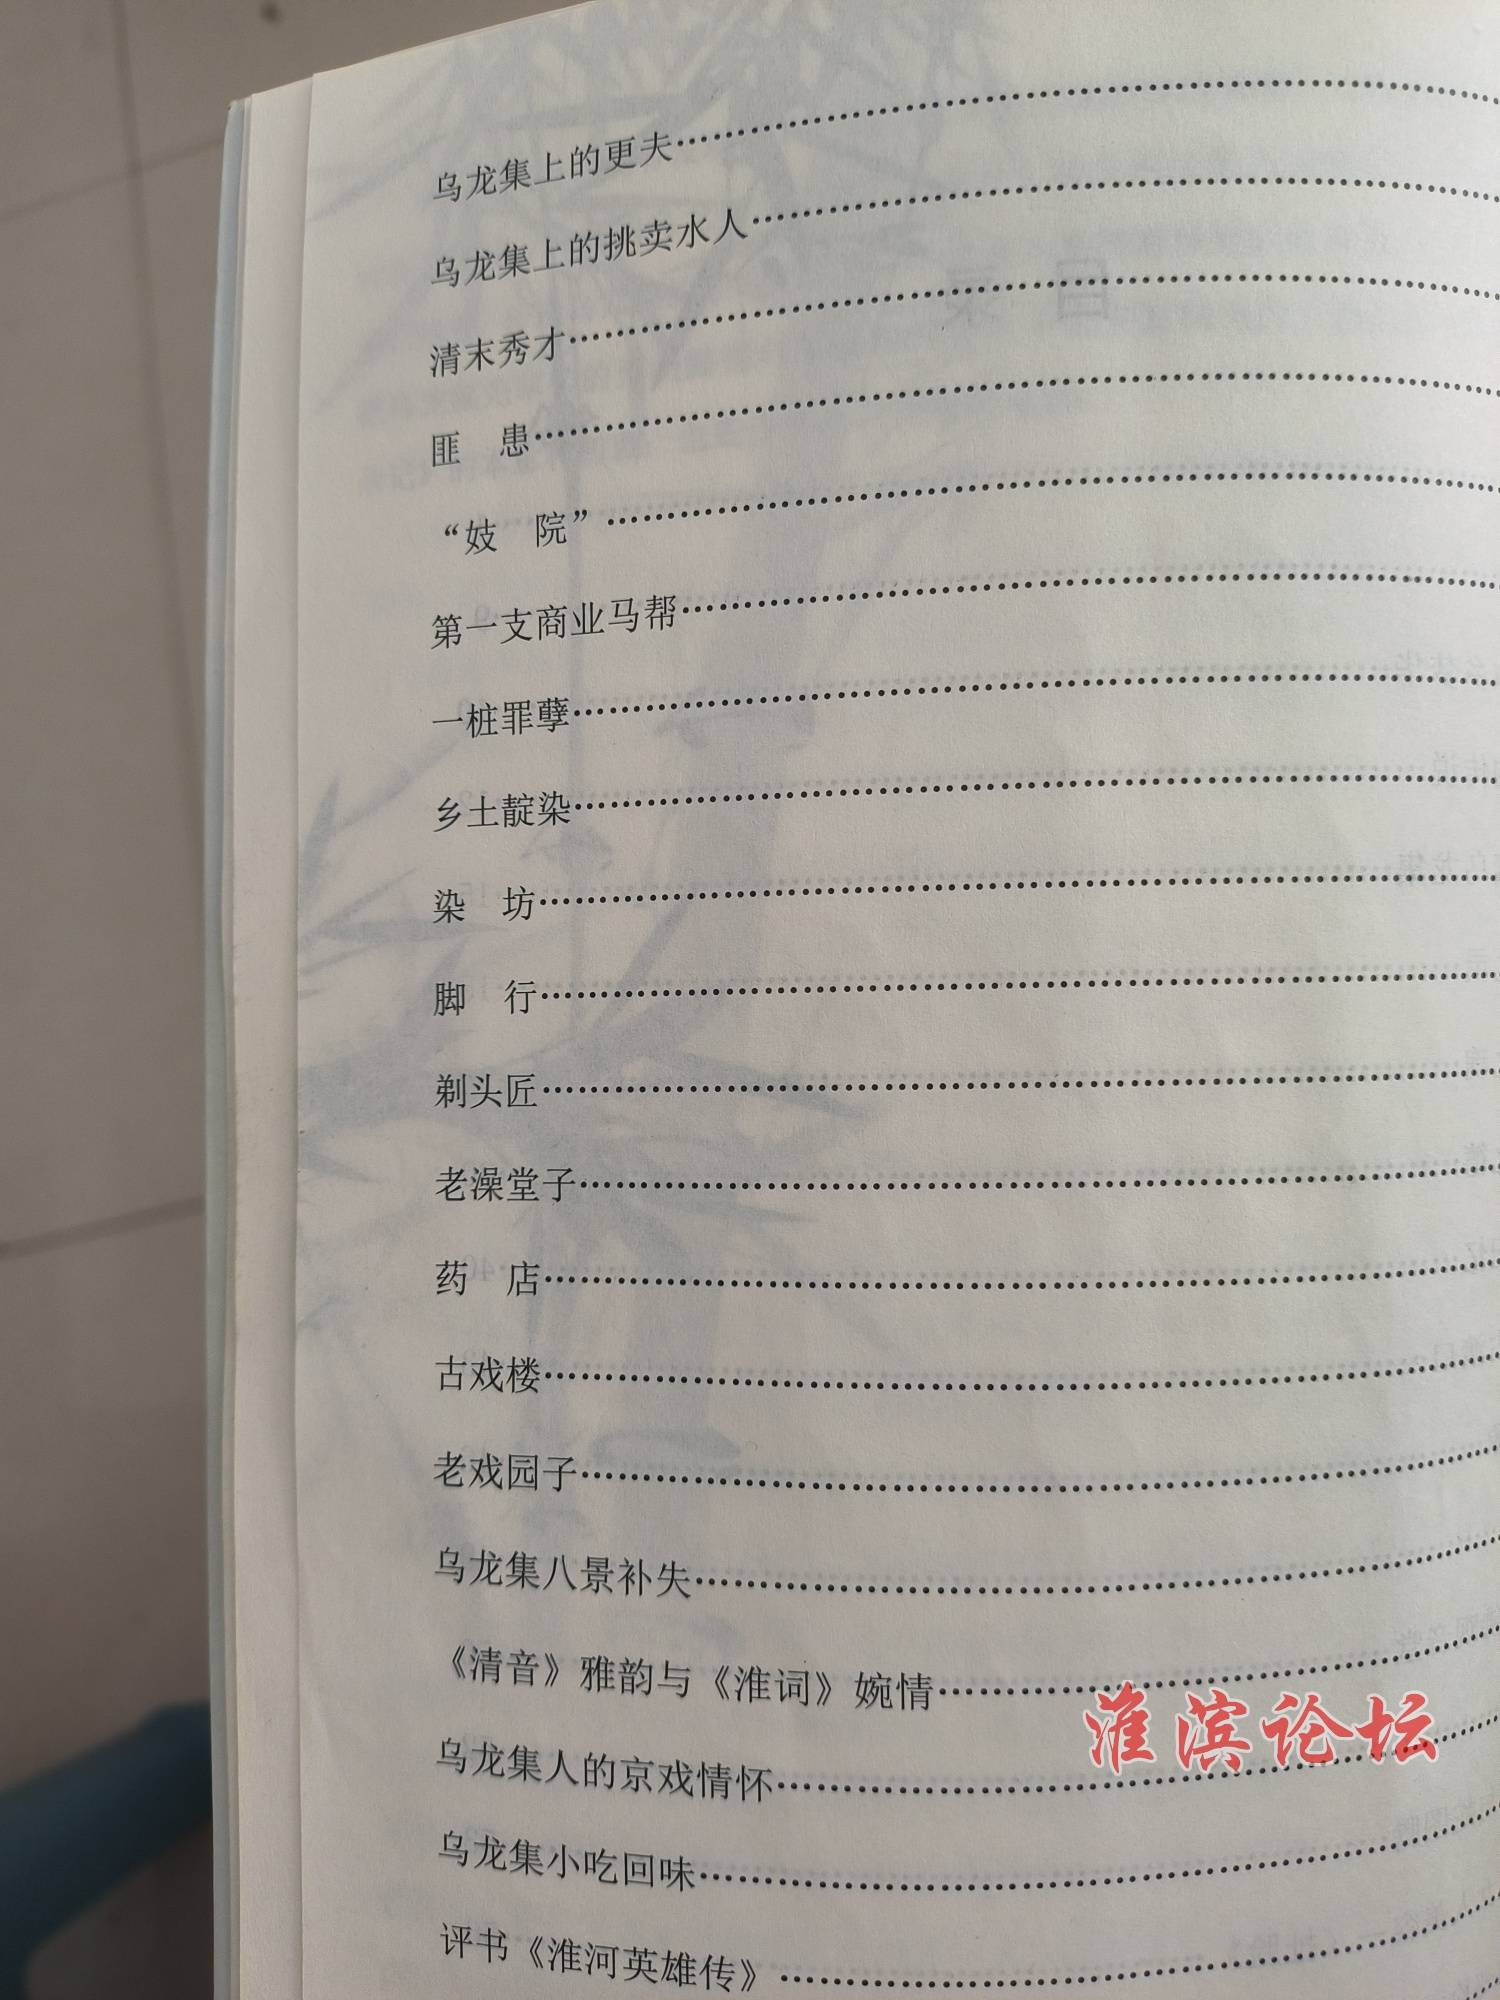 乌龙集上的更夫
乌龙集上的挑卖水人
清末秀才
匪　患
“妓　院”
第一支商业马帮
一桩罪孽
乡土靛染
染　坊
脚　行
剃头匠
老澡堂子
药　店
古戏楼
老戏园子
乌龙集八景补失
《清音》雅韵与《淮词》婉情
淮滨论坛
乌龙集人的京戏情怀
乌龙集小吃回味
评书《淮河英雄传》